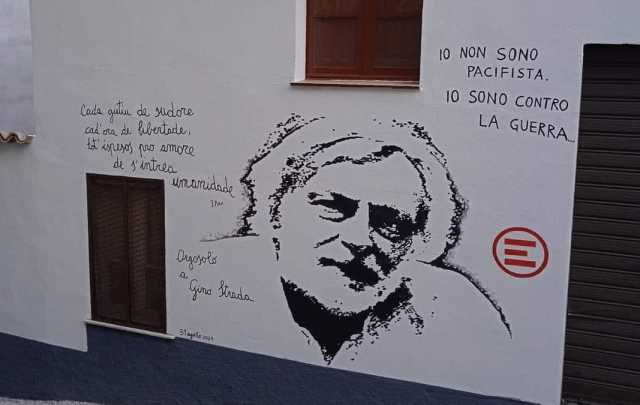 Cada gutiu de sudore
cad'ora de libertade,
ispesos pro amore
de s'intrea
umanidade
IO NON SONO
PACIFISTA.
IO SONO CONTRO
LA GUERRA
Orgosolo
a
Gino Strada
E